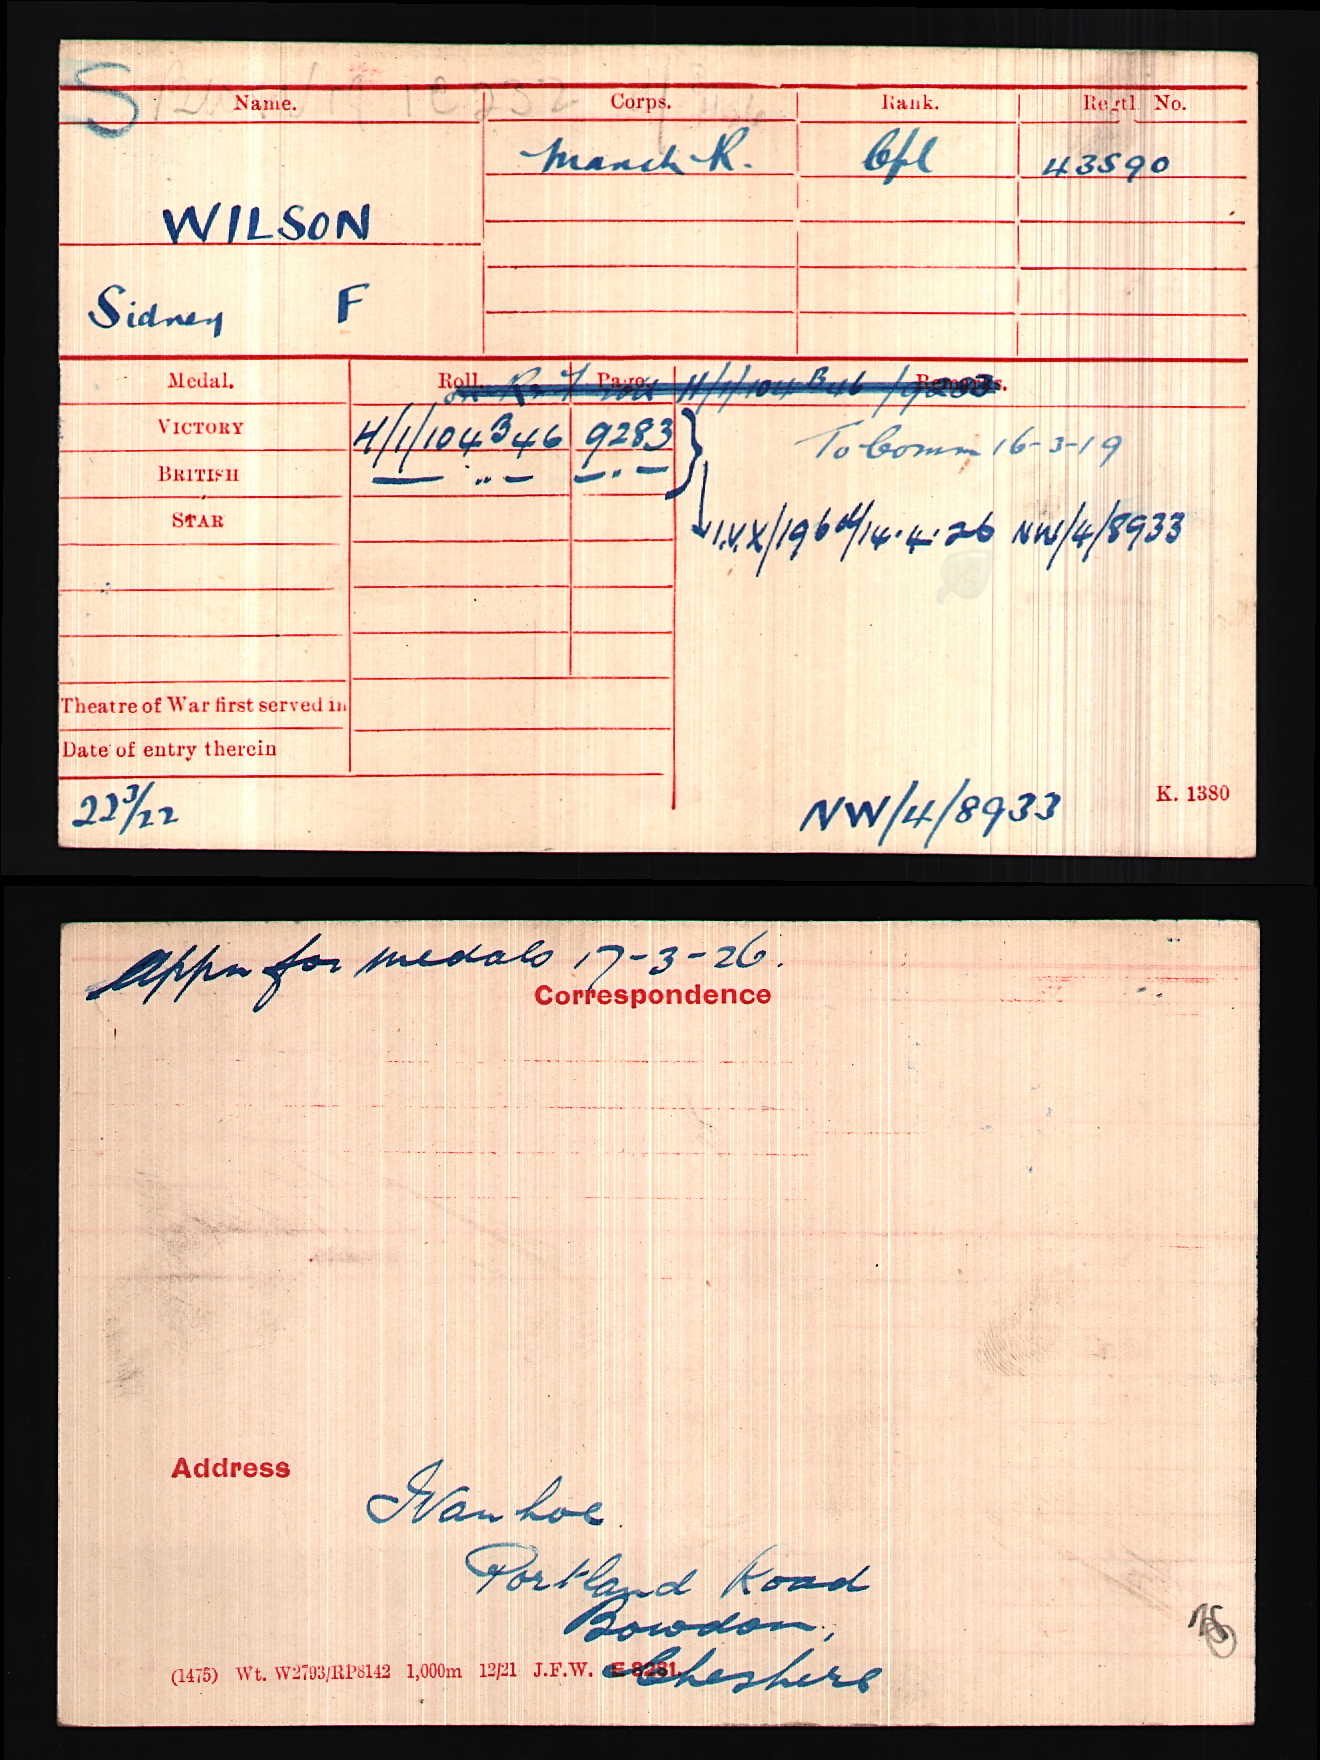 S
Name. Corps. Rank. Regtl. No.
Manch R. Cpl 43590
WILSON
Sidney F
Medal. Roll. Page. Remarks.
H/1/104 B46 / 9283
VICTORY H/1/104 B46 9283 To Comm 16-3-19
BRITISH — " — — " —
STAR I.V.X/196 d/14.4.26 NW/4/8933
Theatre of War first served in
Date of entry therein
22 3/22 NW/4/8933 K. 1380
Appn for medals 17-3-26.
Correspondence
Address
Ivanhoe
Portland Road
Bowdon,
Cheshire
(1475) Wt. W2793/RP8142 1,000m 12/21 J.F.W. E 8281.